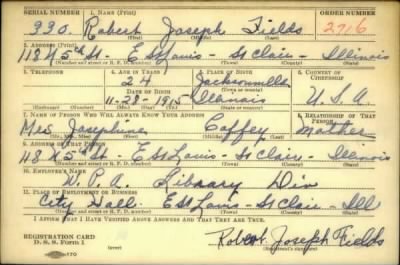 SERIAL NUMBER 1. NAME (Print) ORDER NUMBER
990. Robert Joseph Fields 2716
(First) (Middle) (Last)
2. ADDRESS (Print)
1184 5 St. - E St Louis - St Clair - Illinois
(Number and street or R. F. D. number) (Town) (County) (State)
3. TELEPHONE 4. AGE IN YEARS 5. PLACE OF BIRTH 6. COUNTRY OF CITIZENSHIP
24 Jacksonville
DATE OF BIRTH (Town or county)
11-28-1915 Illinois U.S.A.
(Exchange) (Number) (Mo.) (Day) (Yr.) (State or country)
7. NAME OF PERSON WHO WILL ALWAYS KNOW YOUR ADDRESS 8. RELATIONSHIP OF THAT PERSON
Mrs Josephine Caffey Mother
(Mr., Mrs., Miss) (First) (Middle) (Last)
9. ADDRESS OF THAT PERSON
1184 5 St E St Louis - St Clair - Illinois
(Number and street or R. F. D. number) (Town) (County) (State)
10. EMPLOYER'S NAME
W.P.A. Library Div
11. PLACE OF EMPLOYMENT OR BUSINESS
City Hall. E St Louis - St Clair - Ill
(Number and street or R. F. D. number) (Town) (County) (State)
I AFFIRM THAT I HAVE VERIFIED ABOVE ANSWERS AND THAT THEY ARE TRUE.
REGISTRATION CARD
D. S. S. Form 1 Robert Joseph Fields
(Registrant's signature)